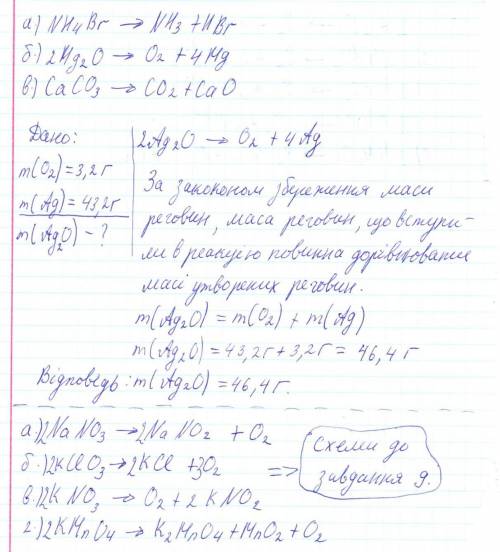 а) NH4Br → NH3 + HBr
б) 2Hg2O → O2 + 4Hg
в) CaCO3 → CO2 + CaO
Дано:
m(O2) = 3,2 г
m(Ag) = 43,2 г
m(Ag2O) - ?
2Ag2O → O2 + 4Ag
За законоком збереження маси
реговин, маса реговин, що вступи-
ли в реакцію повинна дорівнювати
масі утворених реговин.
m(Ag2O) = m(O2) + m(Ag)
m(Ag2O) = 43,2 г + 3,2 г = 46,4 г
Відповедь: m(Ag2O) = 46,4 г.
а.) 2NaNO3 → 2NaNO2 + O2
б.) 2KClO3 → 2KCl + 3O2
в.) 2KNO3 → O2 + 2KNO2
г.) 2KMnO4 → K2MnO4 + MnO2 + O2
=> Схеми до
завдання 9.